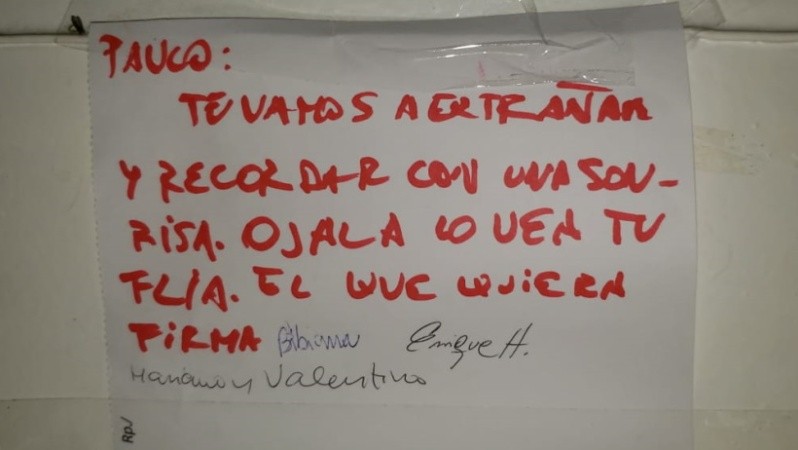 PAUCO:
TE VAMOS A EXTRAÑAR
Y RECORDAR CON UNA SON-
RISA. OJALA LO VEA TU
FLIA. EL QUE QUIERA
FIRMA Bibiana Enrique H.
Mariano y Valentino
RPJ